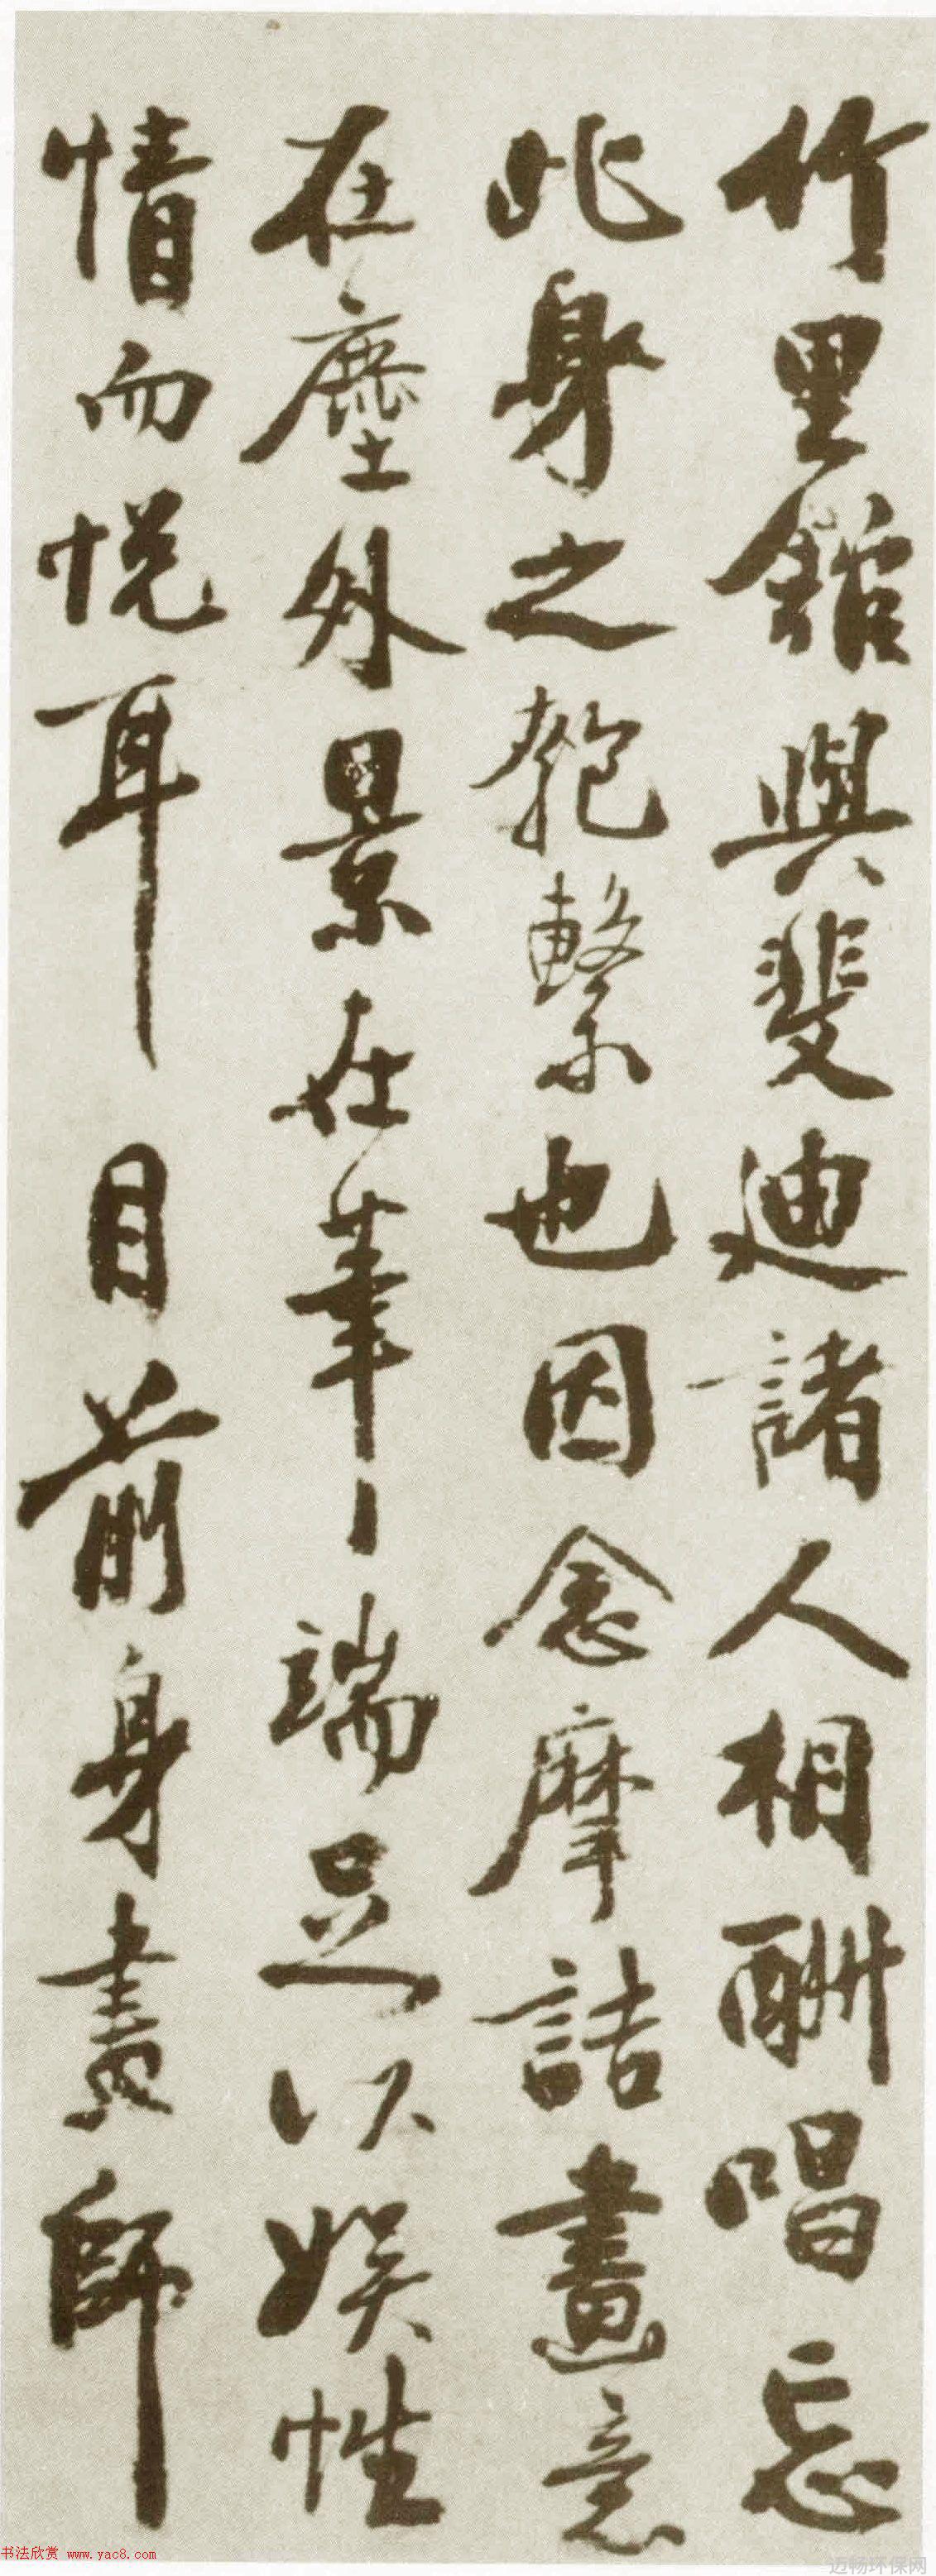 竹里館與斐迪諸人相酬唱忘
此身之匏繫也因念摩詰畫意
在塵外景在筆端足以娛性
情而悅耳目前身畫師
书法欣赏 www.yac8.com
迈畅环保网